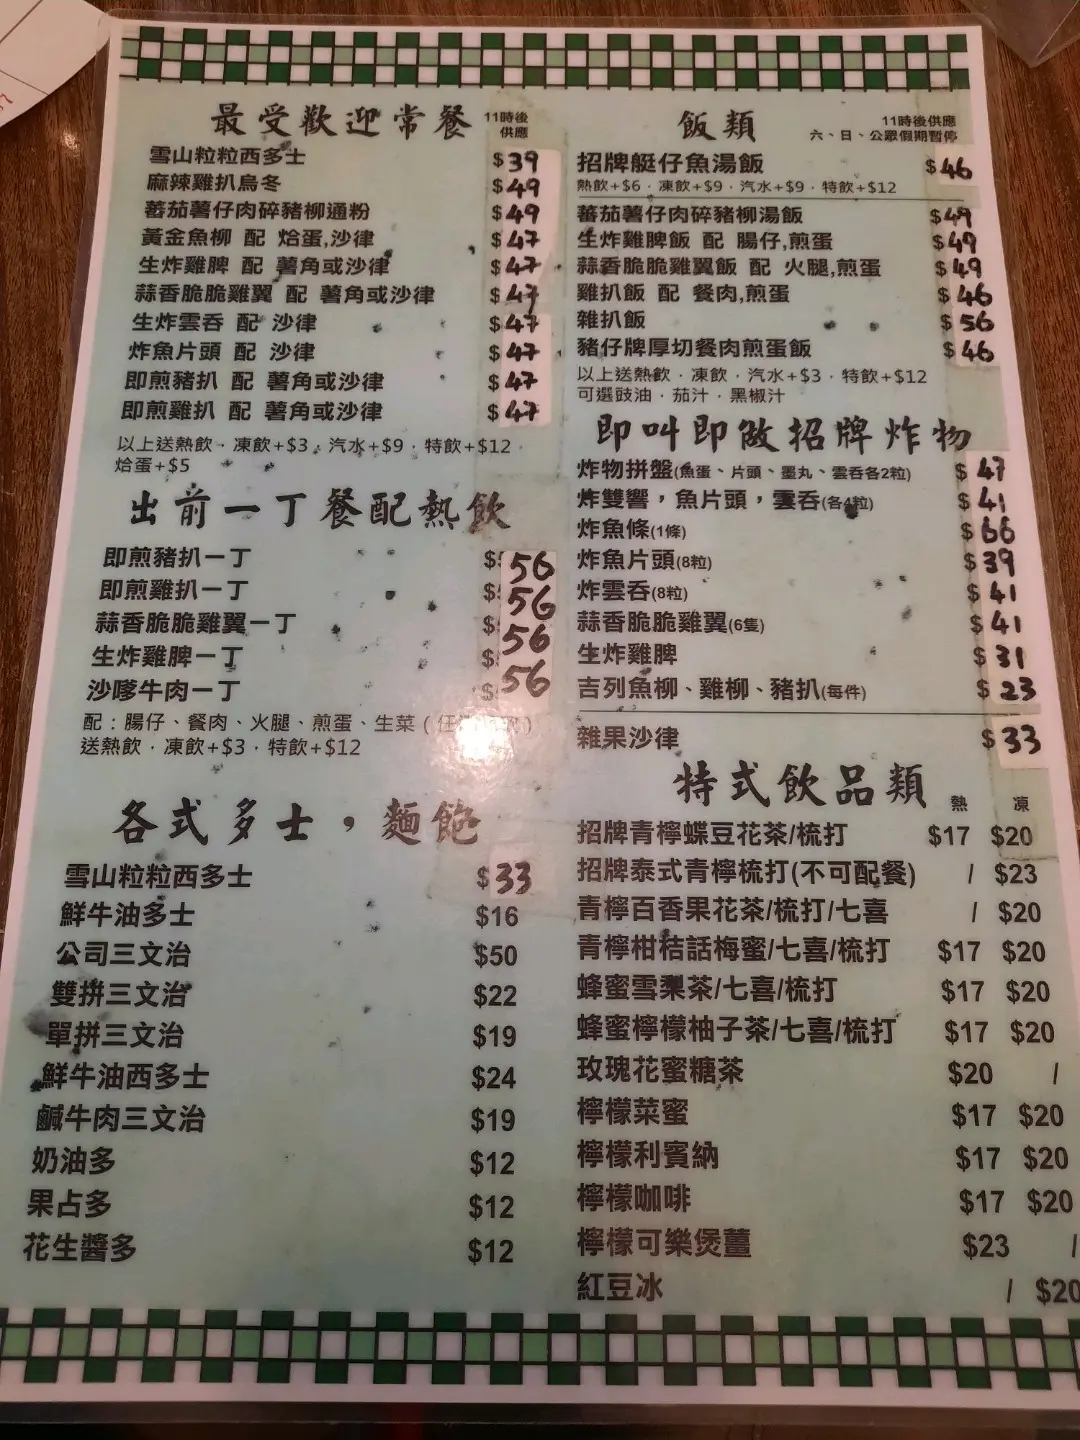 最受歡迎常餐 11時後供應
雪山粒粒西多士 $39
麻辣雞扒烏冬 $49
蕃茄薯仔肉碎豬柳通粉 $49
黃金魚柳 配 烚蛋,沙律 $47
生炸雞脾 配 薯角或沙律 $47
蒜香脆脆雞翼 配 薯角或沙律 $47
生炸雲吞 配 沙律 $47
炸魚片頭 配 沙律 $47
即煎豬扒 配 薯角或沙律 $47
即煎雞扒 配 薯角或沙律 $47
以上送熱飲﹒凍飲+$3﹒汽水+$9﹒特飲+$12﹒
烚蛋+$5
出前一丁餐配熱飲
即煎豬扒一丁 $56
即煎雞扒一丁 $56
蒜香脆脆雞翼一丁 $56
生炸雞脾一丁 $56
沙嗲牛肉一丁
配：腸仔、餐肉、火腿、煎蛋、生菜
送熱飲﹒凍飲+$3﹒特飲+$12
各式多士，麵飽
雪山粒粒西多士 $33
鮮牛油多士 $16
公司三文治 $50
雙拼三文治 $22
單拼三文治 $19
鮮牛油西多士 $24
鹹牛肉三文治 $19
奶油多 $12
果占多 $12
花生醬多 $12
飯類 11時後供應
六、日、公眾假期暫停
招牌艇仔魚湯飯 $46
熱飲+$6﹒凍飲+$9﹒汽水+$9﹒特飲+$12
蕃茄薯仔肉碎豬柳湯飯 $49
生炸雞脾飯 配 腸仔,煎蛋 $49
蒜香脆脆雞翼飯 配 火腿,煎蛋 $49
雞扒飯 配 餐肉,煎蛋 $46
雜扒飯 $56
豬仔牌厚切餐肉煎蛋飯 $46
以上送熱飲﹒凍飲﹒汽水+$3﹒特飲+$12
可選豉油﹒茄汁﹒黑椒汁
即叫即做招牌炸物
炸物拼盤(魚蛋、片頭、墨丸、雲吞各2粒) $47
炸雙響，魚片頭，雲吞(各4粒) $41
炸魚條(1條) $66
炸魚片頭(8粒) $39
炸雲吞(8粒) $41
蒜香脆脆雞翼(6隻) $41
生炸雞脾 $31
吉列魚柳、雞柳、豬扒(每件) $23
雜果沙律 $33
特式飲品類 熱 凍
招牌青檸蝶豆花茶/梳打 $17 $20
招牌泰式青檸梳打(不可配餐) / $23
青檸百香果花茶/梳打/七喜 / $20
青檸柑桔話梅蜜/七喜/梳打 $17 $20
蜂蜜雪梨茶/七喜/梳打 $17 $20
蜂蜜檸檬柚子茶/七喜/梳打 $17 $20
玫瑰花蜜糖茶 $20 /
檸檬菜蜜 $17 $20
檸檬利賓納 $17 $20
檸檬咖啡 $17 $20
檸檬可樂煲薑 $23 /
紅豆冰 / $20